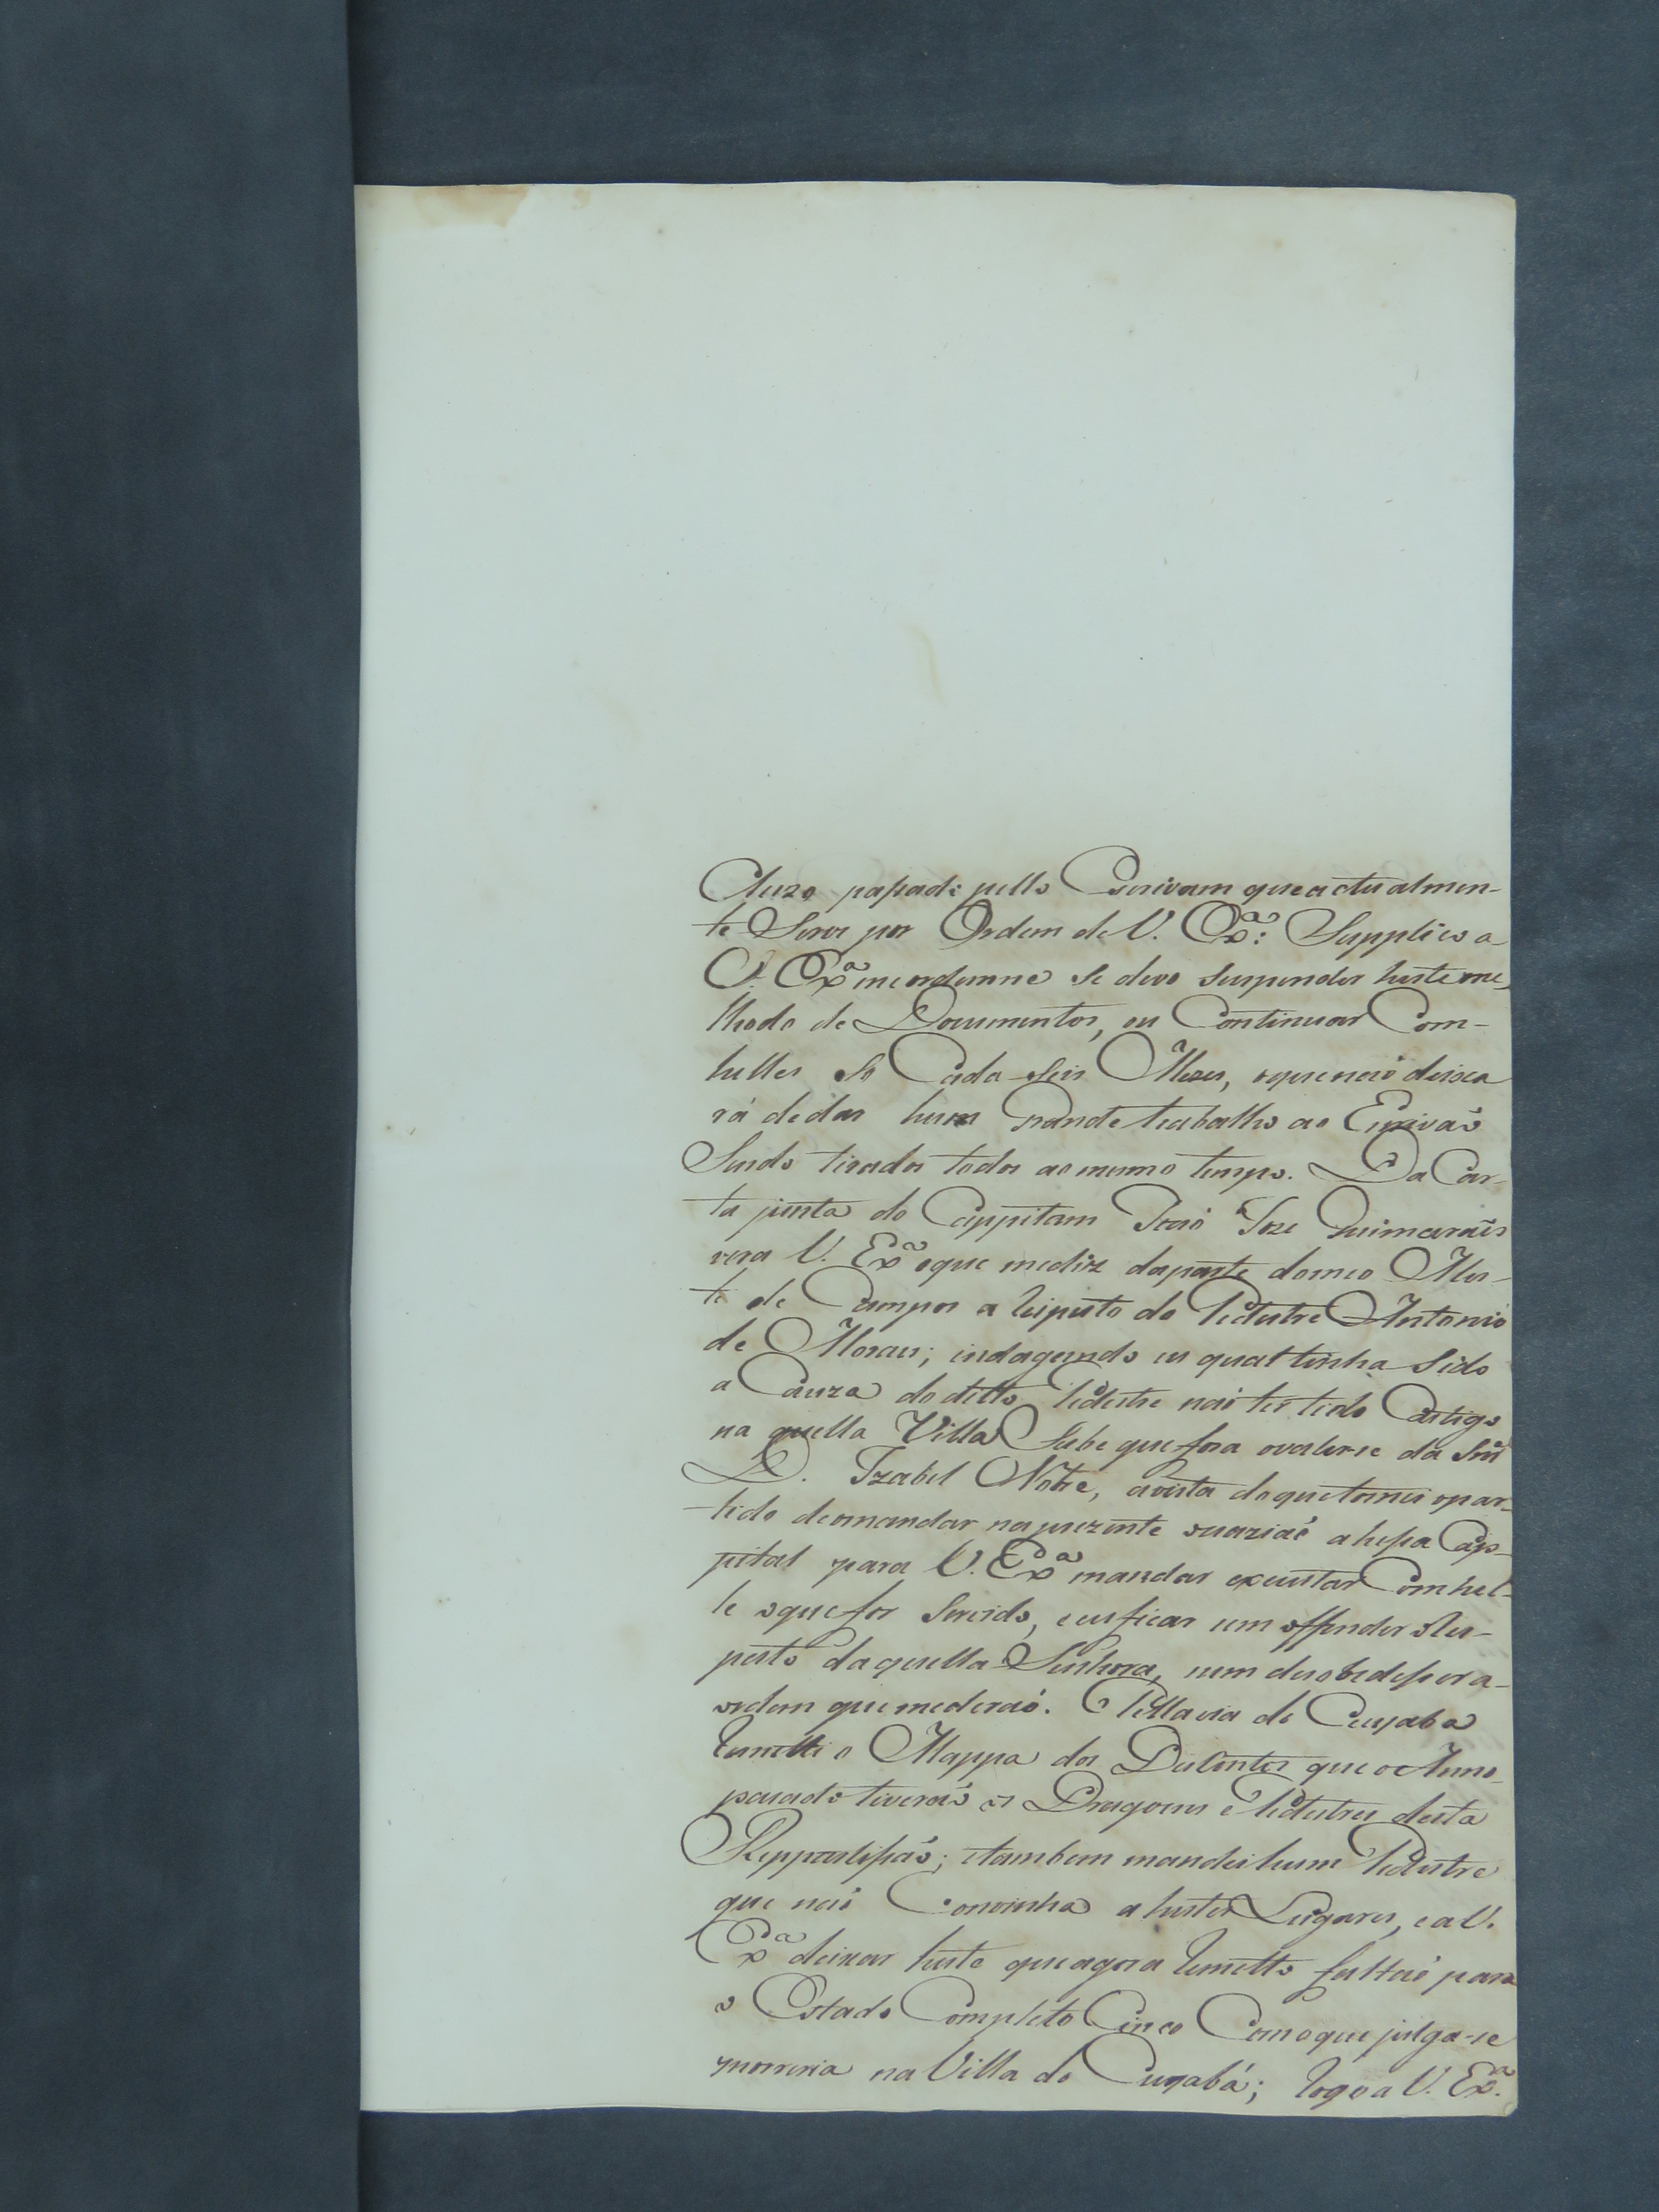 Cluzo passado pello Escrivam que actualmen-
te Serve por Ordem de V. Exª: Supplico a-
V. Exª me ordenne se devo suspender heste me-
thodo de Documentos, ou Continuar Com-
helles so Cada seis Mezes, oque naó deixa
rá dedar hum grande trabalho ao Escrivaõ
Sendo tirados todos aomesmo tempo. Da Car-
ta junta do Cappitam Joaó Joze Guimaraẽs
vera V. Exª oque mediz daparte domeo Mes-
te de Campos a Respeito do Pedestre Antonio
de Moraes; indagando eu qual tinha Sido
a Cauza do ditto Pedestre naó ter tido Castigo
na quella Villa Sube que fora ovalerse da Snrª
D. Izabel Nobre, avista doque tomei opar-
tido demandar na prezente ocaziaó ahessa Cap-
pital para V. Exª mandar executar Com hel-
le oque for Servido, e eu ficar sem offender o Res-
peito daquella Senhora, nem desobedesser a-
ordem que mederaó. Pella via do Cuyaba
Remetti o Mappa dos Doentes que o Anno-
passado tiveraõ os Dragoens e Pedestres desta
Reppartissaõ; etambem mandei hum Pedestre
que naó Convinha a hestes Lugares, e a V.
Exª deixar heste que agora Remetto faltaó para
o Estado Completo Cinco Com o que julga-se
morreria na Villa do Cuyabá; Rogo a V. Exª.